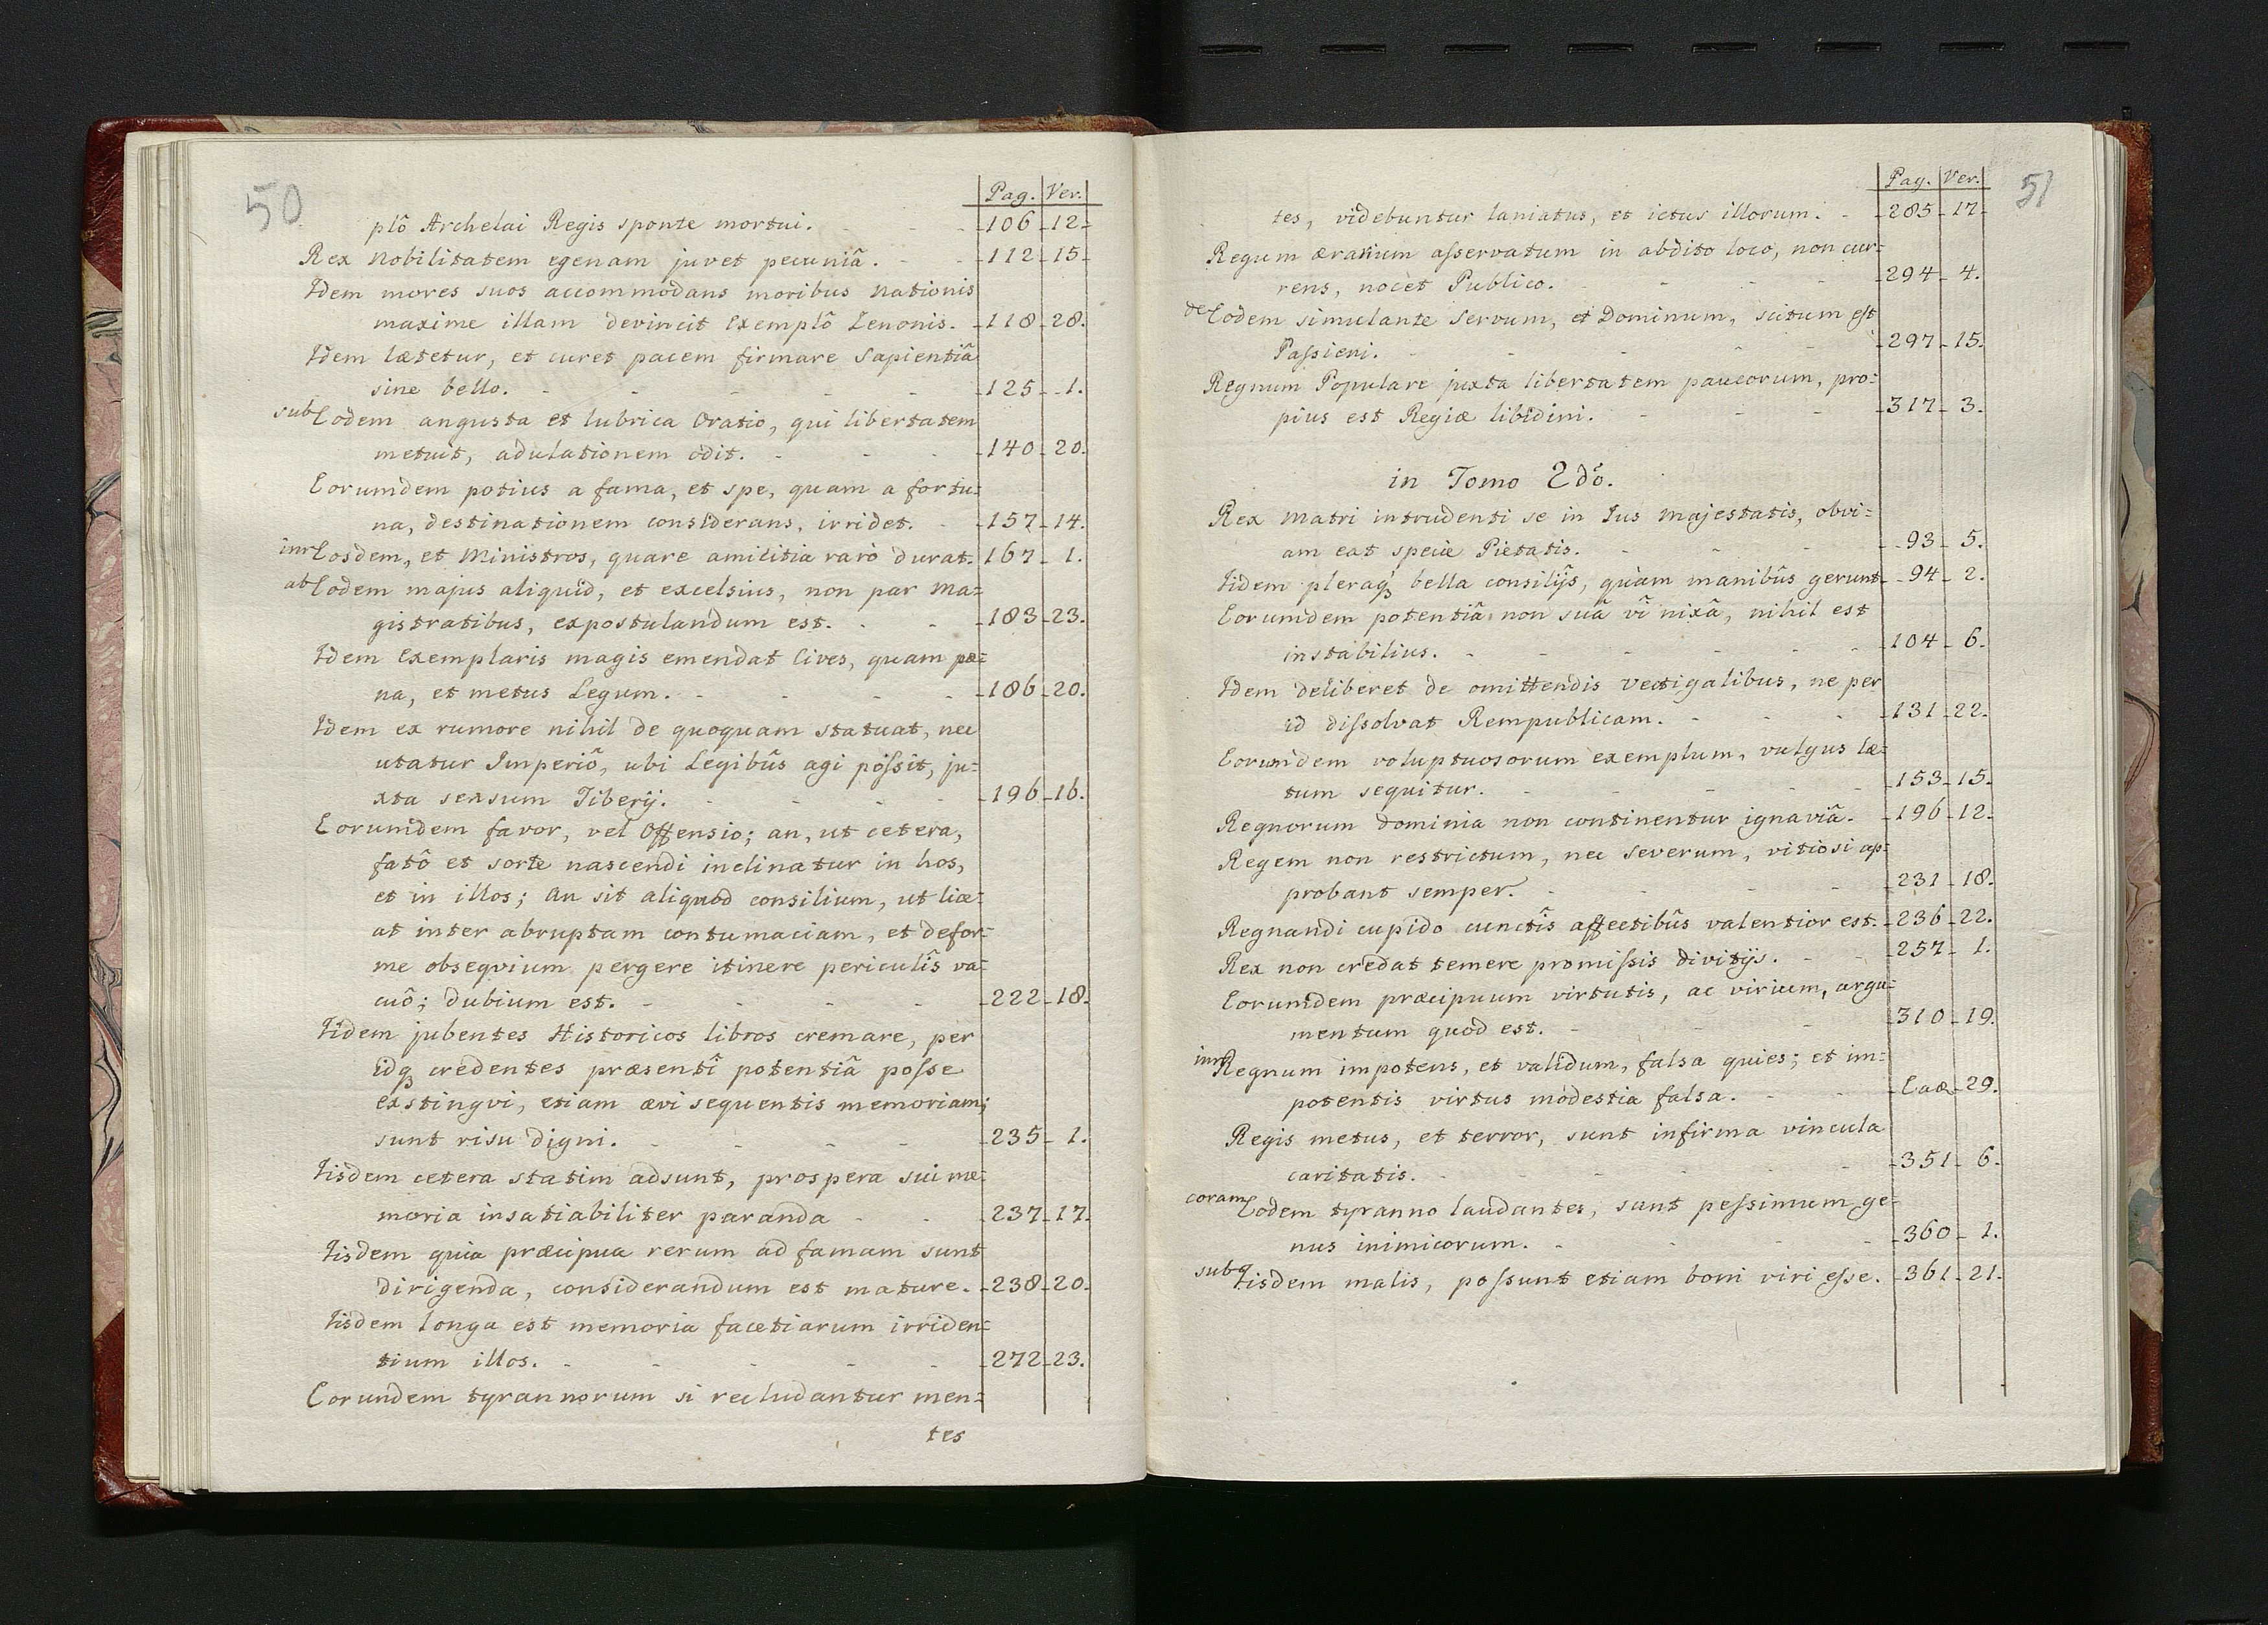 50
Pag. Ver.
plô Archelai Regis sponte mortui. - - - 106 - 12 -
Rex Nobilitatem egenam juvet pecuniâ. - - 112 - 15 -
Idem mores suos accommodans moribus Nationis
maxime illam devincit Exemplô Zenonis. - 118 - 28.
Idem lætetur, et curet pacem firmare Sapientiâ
sine bello. - - - - - 125 - - 1.
sub Eodem angusta et lubrica Oratio, qui libertatem
metuit, adulationem odit. - - - 140 - 20.
Eorumdem potius a fama, et spe, quam a fortu=
na, destinationem considerans, irridet. - 157 - 14.
inr Eosdem, et Ministros, quare amicitia rarò durat. 167 - 1.
ab Eodem majus aliquid, et excelsius, non par Ma=
gistratibus, expostulandum est. - - - 183 - 23.
Idem Exemplaris magis emendat Cives, quam pœ=
na, et metus Legum. - - - - 186 - 20.
Idem ex rumore nihil de quoquam statuat, nec
utatur Imperiô, ubi Legibûs agi poſsit, ju=
xta sensum Tiberij. - - - - 196 - 16.
Eorumdem favor, vel Offensio; an, ut cetera,
fatô et sorte nascendi inclinatur in hos,
et in illos; an sit aliquod consilium, ut lice=
at inter abruptam contumaciam, et defor=
me obseqvium pergere itinere periculîs va=
cuô; dubium est. - - - - 222 - 18.
Iidem jubentes Historicos libros cremare, per
idq credentes præsentî potentiâ poſse
exstingvi, etiam ævi sequentis memoriam;
sunt risu digni. - - - - 235 - 1.
Iisdem cetera statim adsunt, prospera sui me=
moria insatiabiliter paranda - - 237 - 17.
Iisdem quia præcipua rerum ad famam sunt
dirigenda, considerandum est mature. - 238 - 20.
Iisdem longa est memoria facetiarum irriden=
tium illos. - - - - - 272 - 23.
Eorundem tyrannorum si recludantur men=
tes
51
Pag. Ver.
tes, videbuntur laniatus, et ictus illorum. - - 285 - 17 -
Regum ærarium aſservatum in abdito loco, non cur=
rens, nocet Publico. - - - - 294 - 4.
de Eodem simulante Servum, et Dominum, scitum eſt
Paſsieni. - - - - 297 - 15.
Regnum Populare juxta libertatem paucorum, pro=
pius est Regiæ libidini. - - - 317 - 3.
in Tomo 2dô.
Rex Matri intrudenti se in Jus Majestatis, obvi=
am eat specie Pietatis. - - - - 93 - 5.
Iidem pleraq bella consilijs, quàm manibûs gerunt - - 94 - 2.
Eorumdem potentiâ non suâ vî nixâ, nihil est
instabilius. - - - - - - 104 - 6.
Idem deliberet de omittendis vectigalibus, ne per
id diſsolvat Rempublicam. - - - 131 - 22.
Eorumdem voluptuosorum exemplum, vulgus læ=
tum sequitur. - - - - - 153 - 15.
Regnorum dominia non continentur ignaviâ. - 196 - 12.
Regem non restrictum, nec severum, vitiosi ap=
probant semper. - - - - 231 - 18.
Regnandi cupido cunctîs affectibûs valentior est. - 236 - 22.
Rex non credat temere promiſsis divitijs. - - 257 - 1.
Eorumdem præcipuum virtutis, ac virium, argu=
mentum quod est. - - - 310 - 19.
inr Regnum impotens, et validum, falsa quies; et im=
potentis virtus modestia falsa. - - - Eaæ - 29.
Regis metus, et terror, sunt infirma vincula
caritatis. - - - - - 351 - 6.
coram Eodem tyranno laudantes, sunt peſsimum ge=
nus inimicorum. - - - - 360 - 1.
subq Iisdem malis, poſsunt etiam boni viri eſse. - 361 - 21.